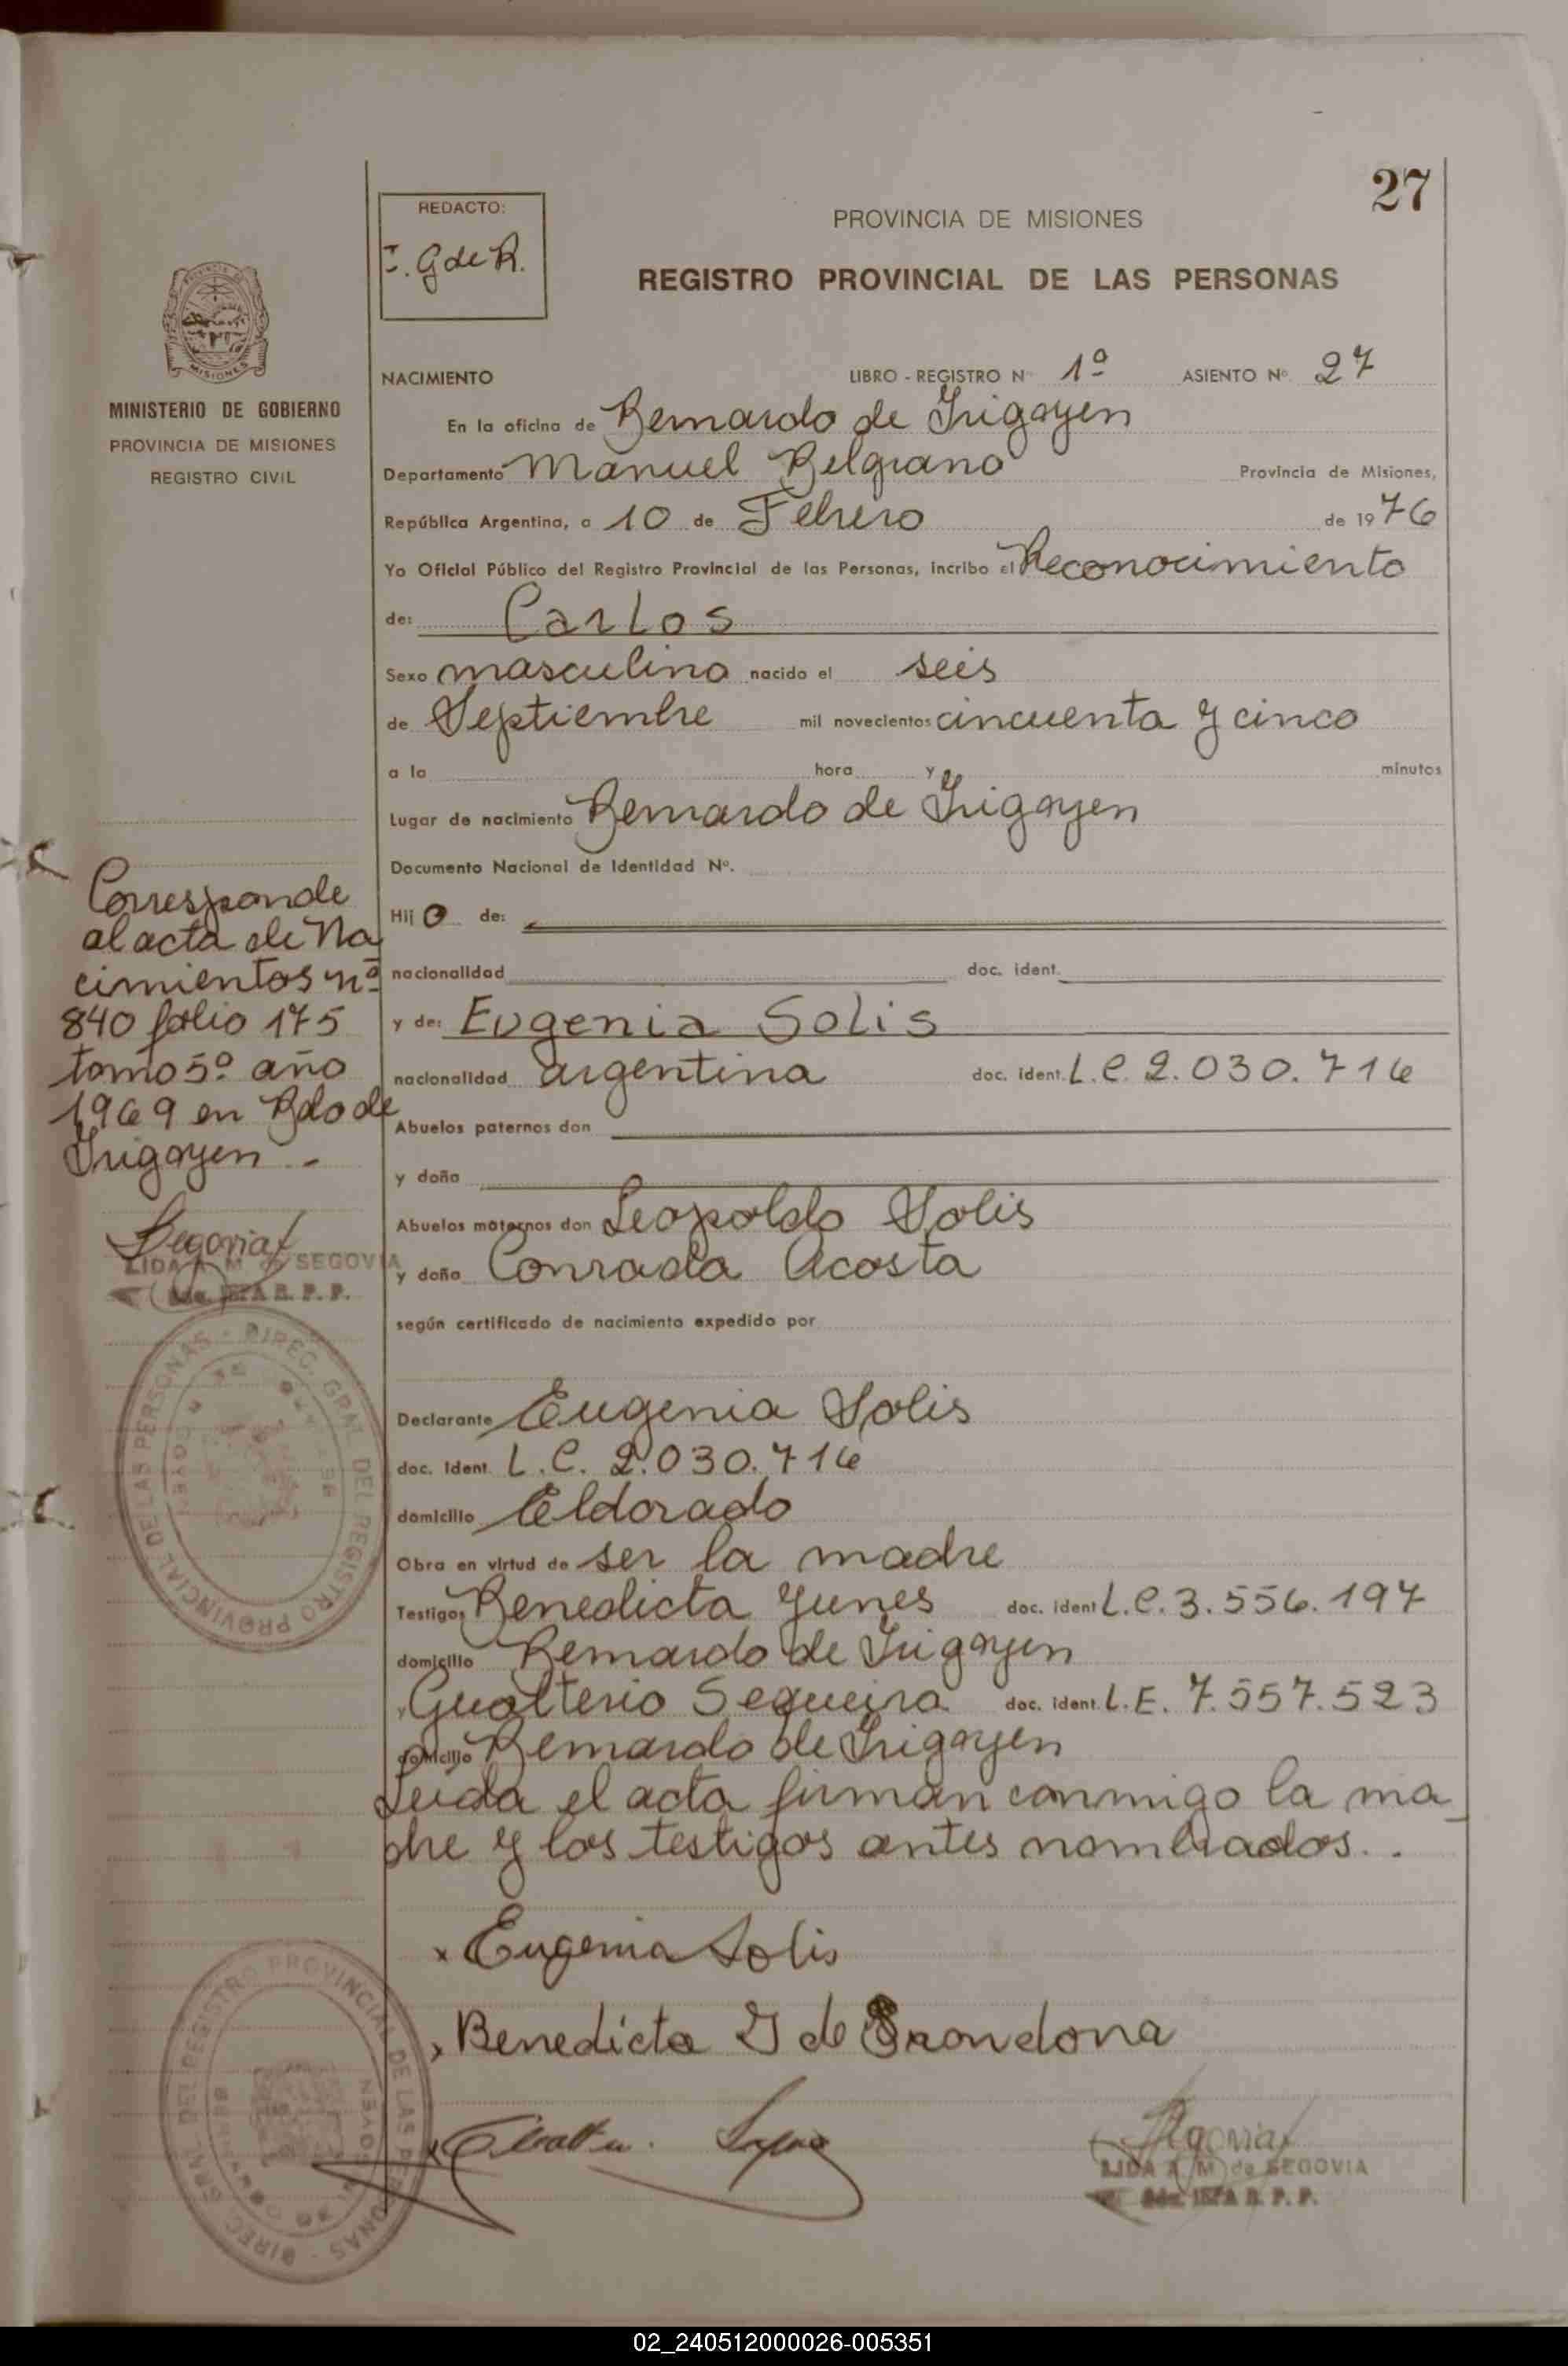 27
REDACTO:
I. G de R.
PROVINCIA DE MISIONES
REGISTRO PROVINCIAL DE LAS PERSONAS
MISIONES
MINISTERIO DE GOBIERNO
PROVINCIA DE MISIONES
REGISTRO CIVIL
NACIMIENTO LIBRO - REGISTRO Nº 1º ASIENTO Nº. 27
En la oficina de Bernardo de Irigoyen
Departamento Manuel Belgrano Provincia de Misiones,
República Argentina, a 10 de Febrero de 1976
Yo Oficial Público del Registro Provincial de las Personas, incribo el Reconocimiento
de: Carlos
Sexo masculino nacido el seis
de Septiembre mil novecientos cincuenta y cinco
a la hora y minutos
Lugar de nacimiento Bernardo de Irigoyen
Documento Nacional de Identidad Nº.
Hijo de:
nacionalidad doc. ident.
y de: Eugenia Solis
nacionalidad argentina doc. ident. L.C. 2.030.716
Abuelos paternos don
y doña
Abuelos maternos don Leopoldo Solis
y doña Conrada Acosta
según certificado de nacimiento expedido por
Declarante Eugenia Solis
doc. Ident. L.C. 2.030.716
domicilio Eldorado
Obra en virtud de ser la madre
Testigos Benedicta Yunes doc. ident L.C. 3.556.197
domicilio Bernardo de Irigoyen
y Gualterio Sequeira doc. ident. L.E. 7.557.523
domicilio Bernardo de Irigoyen
Leída el acta firman conmigo la ma
dre y los testigos antes nombrados..
x Eugenia Solis
Benedicta Y de
Segovia
LIDA A. M de SEGOVIA
R. P. P.
Corresponde
al acta de Na
cimientos nº
840 folio 175
tomo 5º año
1969 en Bdo de
Irigoyen -
Segovia
LIDA A. M de SEGOVIA
R. P. P.
DIREC. GRAL. DEL REGISTRO PROVINCIAL DE LAS PERSONAS
DIREC. GRAL. DEL REGISTRO PROVINCIAL DE LAS PERSONAS
02_240512000026-005351